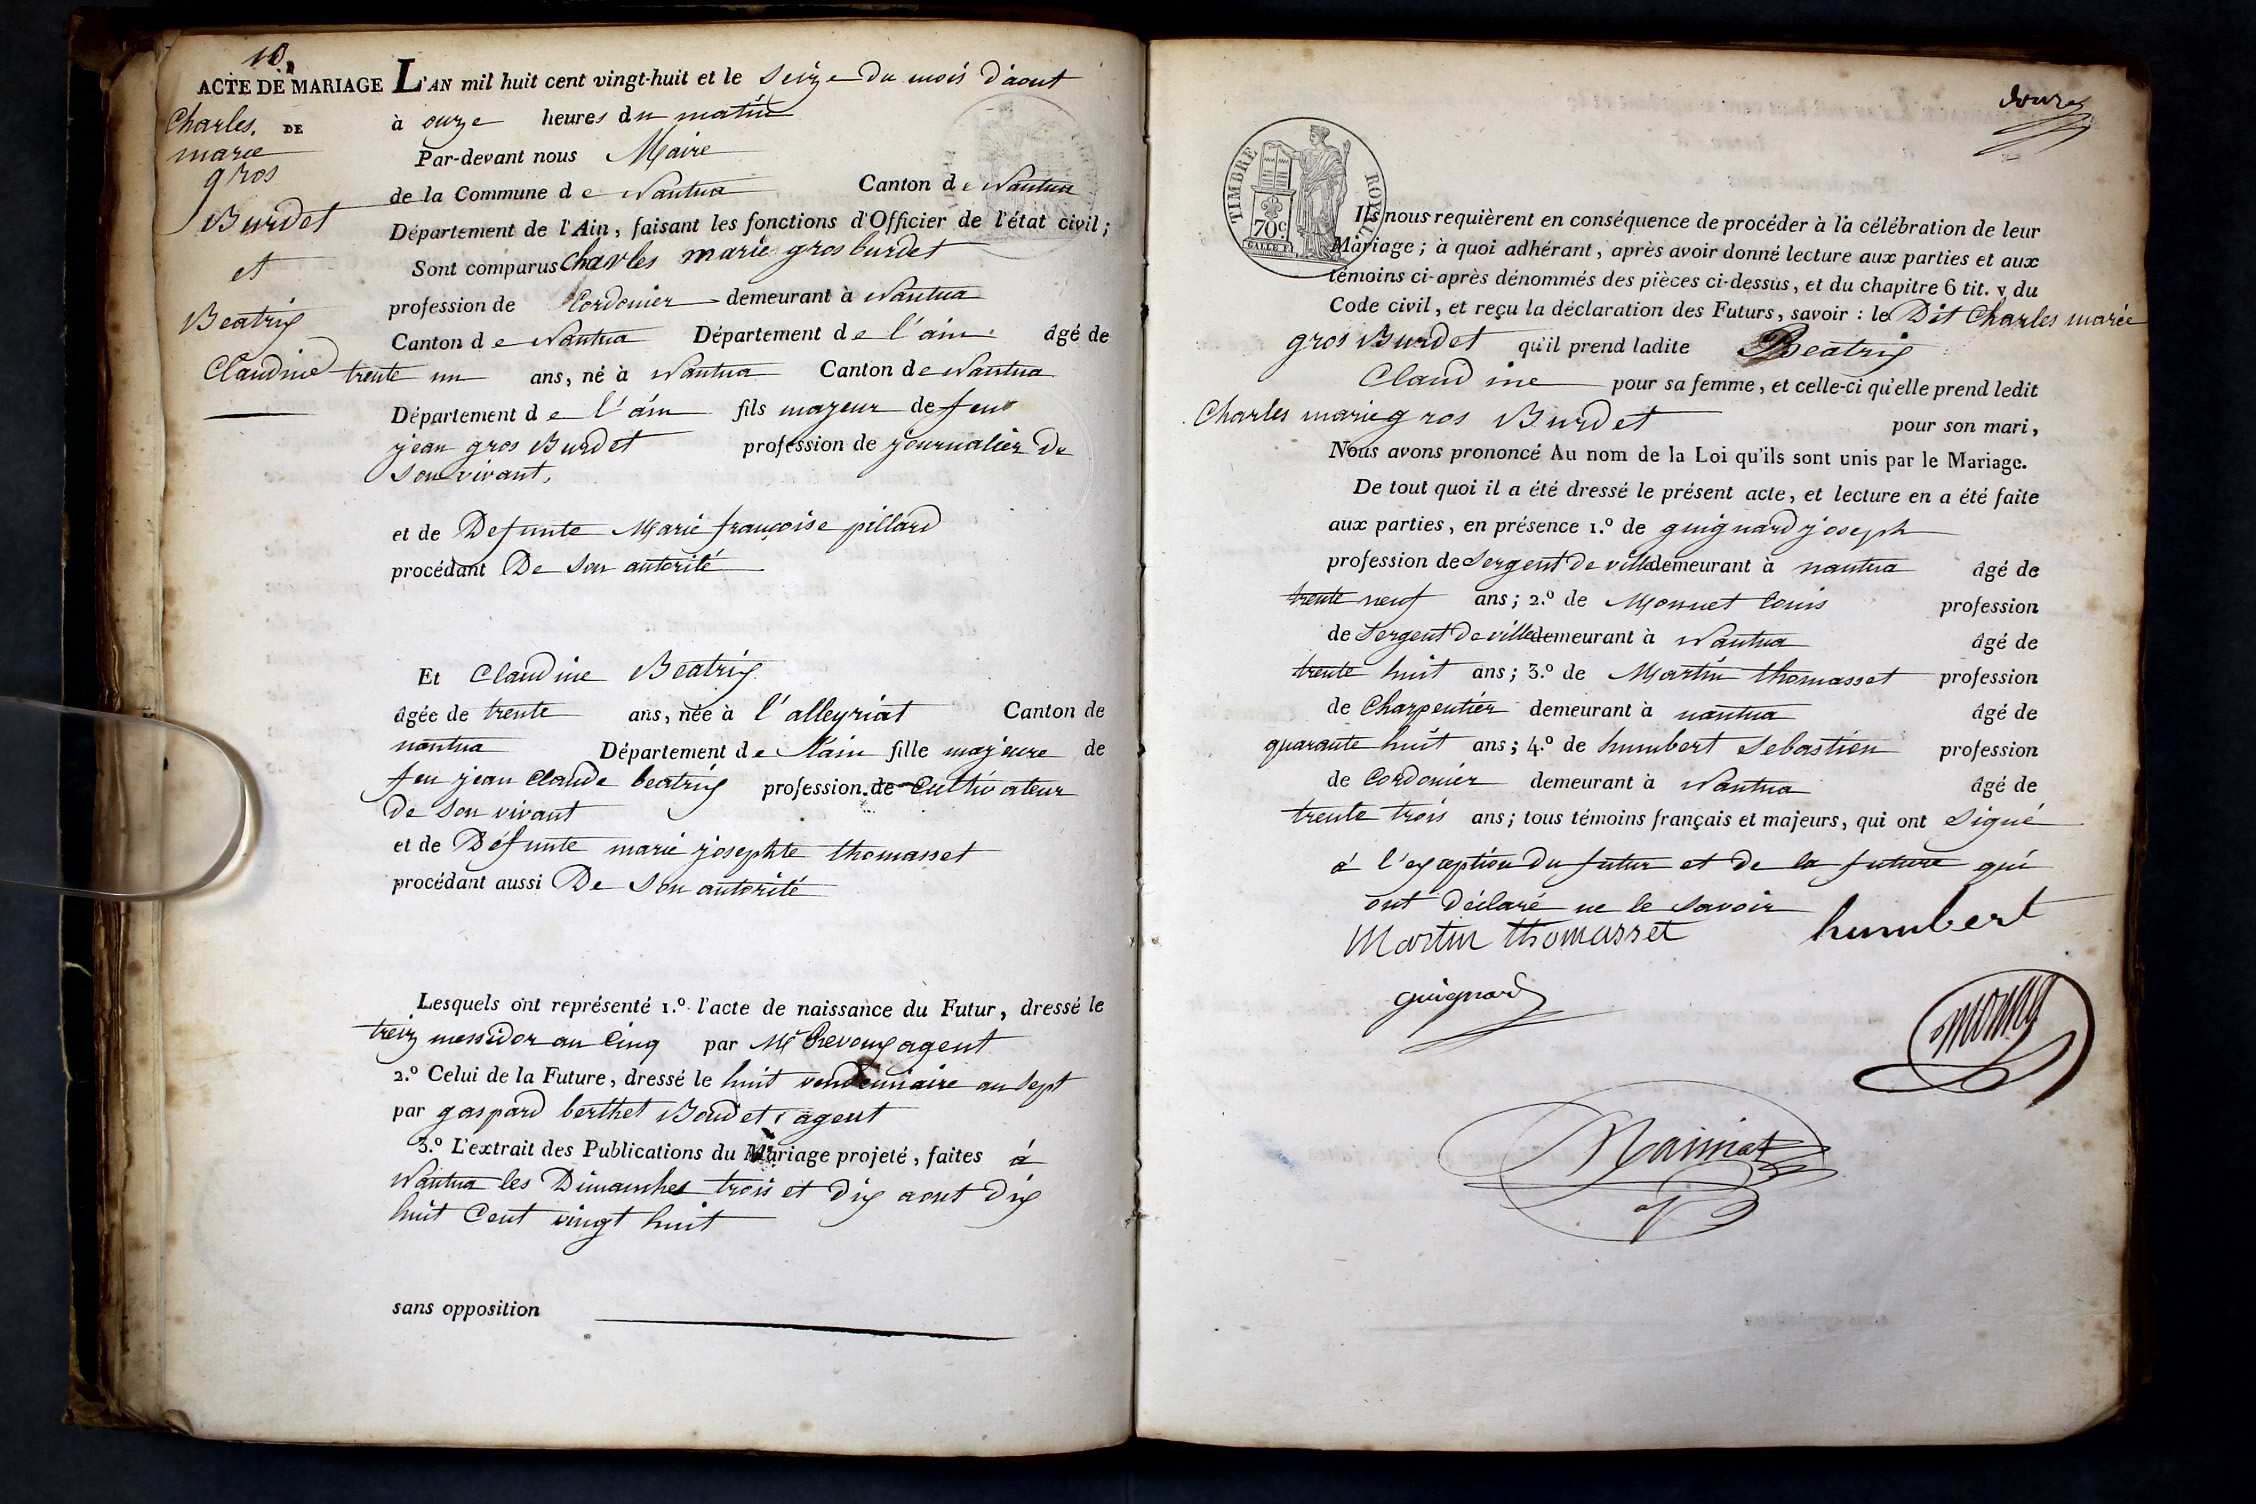 10.
ACTE DE MARIAGE
DE
Charles
marie
gros
Burdet
et
Beatrix
Claudine
L'AN mil huit cent vingt-huit et le seize du mois d'aout
à onze heures du matin
Par-devant nous Maire
de la Commune de Nantua Canton de Nantua
Département de l'Ain, faisant les fonctions d'Officier de l'état civil;
Sont comparus Charles marie gros burdet
profession de Cordonier demeurant à Nantua
Canton de Nantua Département de l'ain âgé de
trente un ans, né à Nantua Canton de Nantua
Département de l'ain fils majeur de feu
jean gros Burdet profession de journalier de
son vivant,
et de Defunte Marie françoise pillard
procédant De son autorité
Et Claudine Beatrix
âgée de trente ans, née à l'alleyriat Canton de
nantua Département de l'ain fille majeure de
feu jean Claude beatrix profession de Cultivateur
de son vivant
et de Défunte marie josephte thomasset
procédant aussi De son autorité
Lesquels ont représenté 1.º l'acte de naissance du Futur, dressé le
treize messidor an Cinq par Mr Chevoux agent
2.º Celui de la Future, dressé le huit vendemiaire an sept
par gaspard berthet Boudet agent
3.º L'extrait des Publications du Mariage projeté, faites à
Nantua les Dimanches trois et dix aout dix
huit Cent vingt huit
sans opposition
douze
TIMBRE ROYAL
70c
Ils nous requièrent en conséquence de procéder à la célébration de leur
Mariage; à quoi adhérant, après avoir donné lecture aux parties et aux
témoins ci-après dénommés des pièces ci-dessus, et du chapitre 6 tit. v du
Code civil, et reçu la déclaration des Futurs, savoir: le Dit Charles marie
gros Burdet qu'il prend ladite Beatrix
Claudine pour sa femme, et celle-ci qu'elle prend ledit
Charles marie gros Burdet pour son mari,
Nous avons prononcé Au nom de la Loi qu'ils sont unis par le Mariage.
De tout quoi il a été dressé le présent acte, et lecture en a été faite
aux parties, en présence 1.º de guignard joseph
profession de Sergent de ville demeurant à nantua âgé de
trente neuf ans; 2.º de Monnet Louis profession
de Sergent de ville demeurant à Nantua âgé de
trente huit ans; 3.º de Martin thomasset profession
de Charpentier demeurant à nantua âgé de
quarante huit ans; 4.º de humbert Sebastien profession
de Cordonier demeurant à Nantua âgé de
trente trois ans; tous témoins français et majeurs, qui ont Signé
à l'exception du futur et de la future qui
ont déclaré ne le savoir
Martin thomasset humbert
guignard